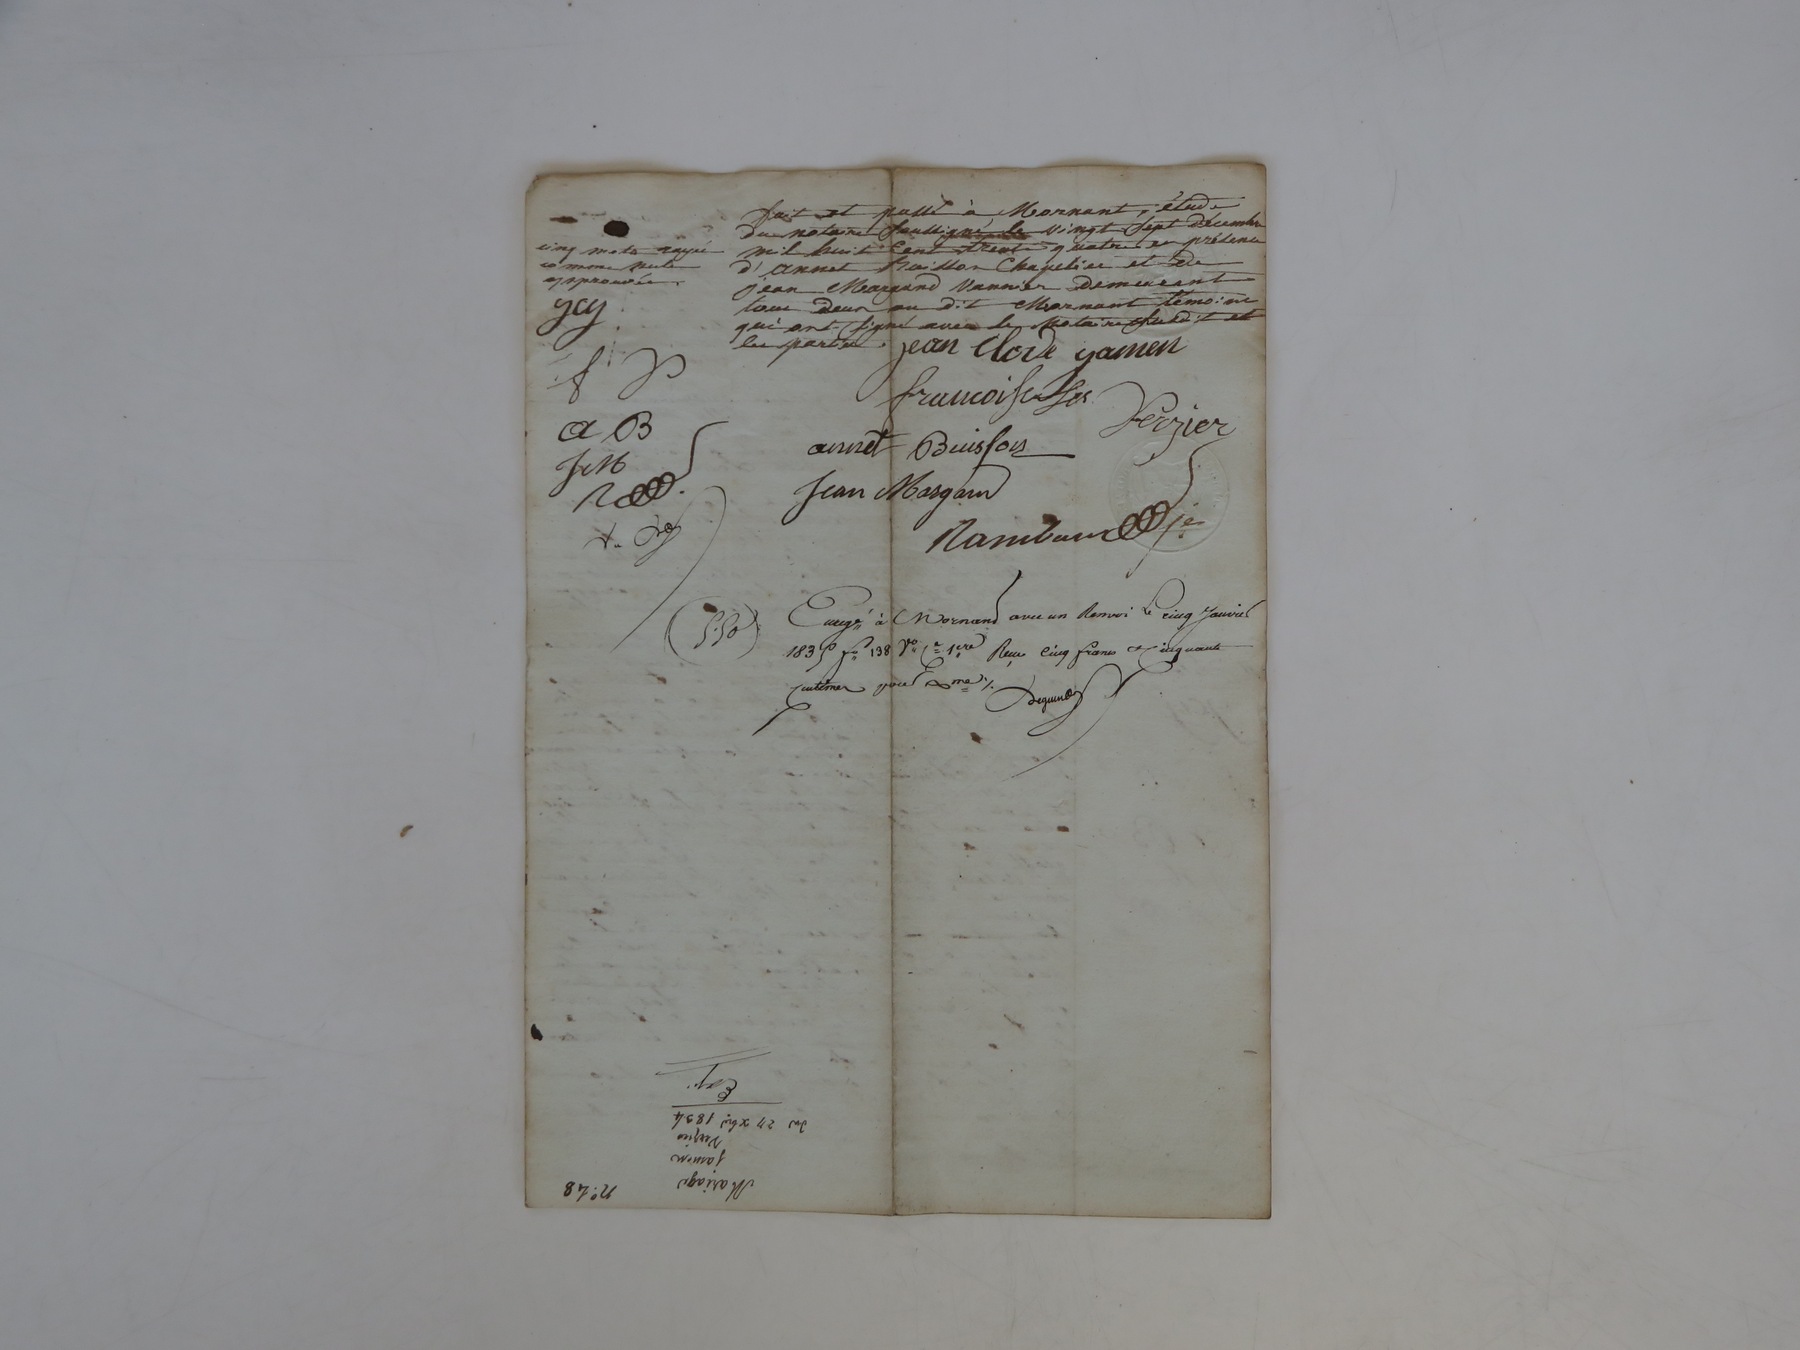 fait et passé à Mornant, étude
du notaire soussigné le vingt sept décembre
mil huit cent trente quatre en présence
d'annet Buisson Chapelier et de
jean Margand Vannier demeurant
tous deux au dit Mornant témoins
qui ont signé avec le Notaire susdit et
les parties.
cinq mots rayés
comme nuls
approuvés.
jcj
f v
a B
J M
R
jean Clode jamen
francoise
Verzier
annet Buisson
Jean Margand
Rambaud je
5.50
Enregé à Mornand avec un Renvoi le cinq Janvier
1835 fo 138 Vo Ce 1ere Reçu cinq francs et cinquante
centimes pour Dxme %.
Deguin
no. 48
Mariage
jamen
Verzier
du 27 xbre 1834
Exp.